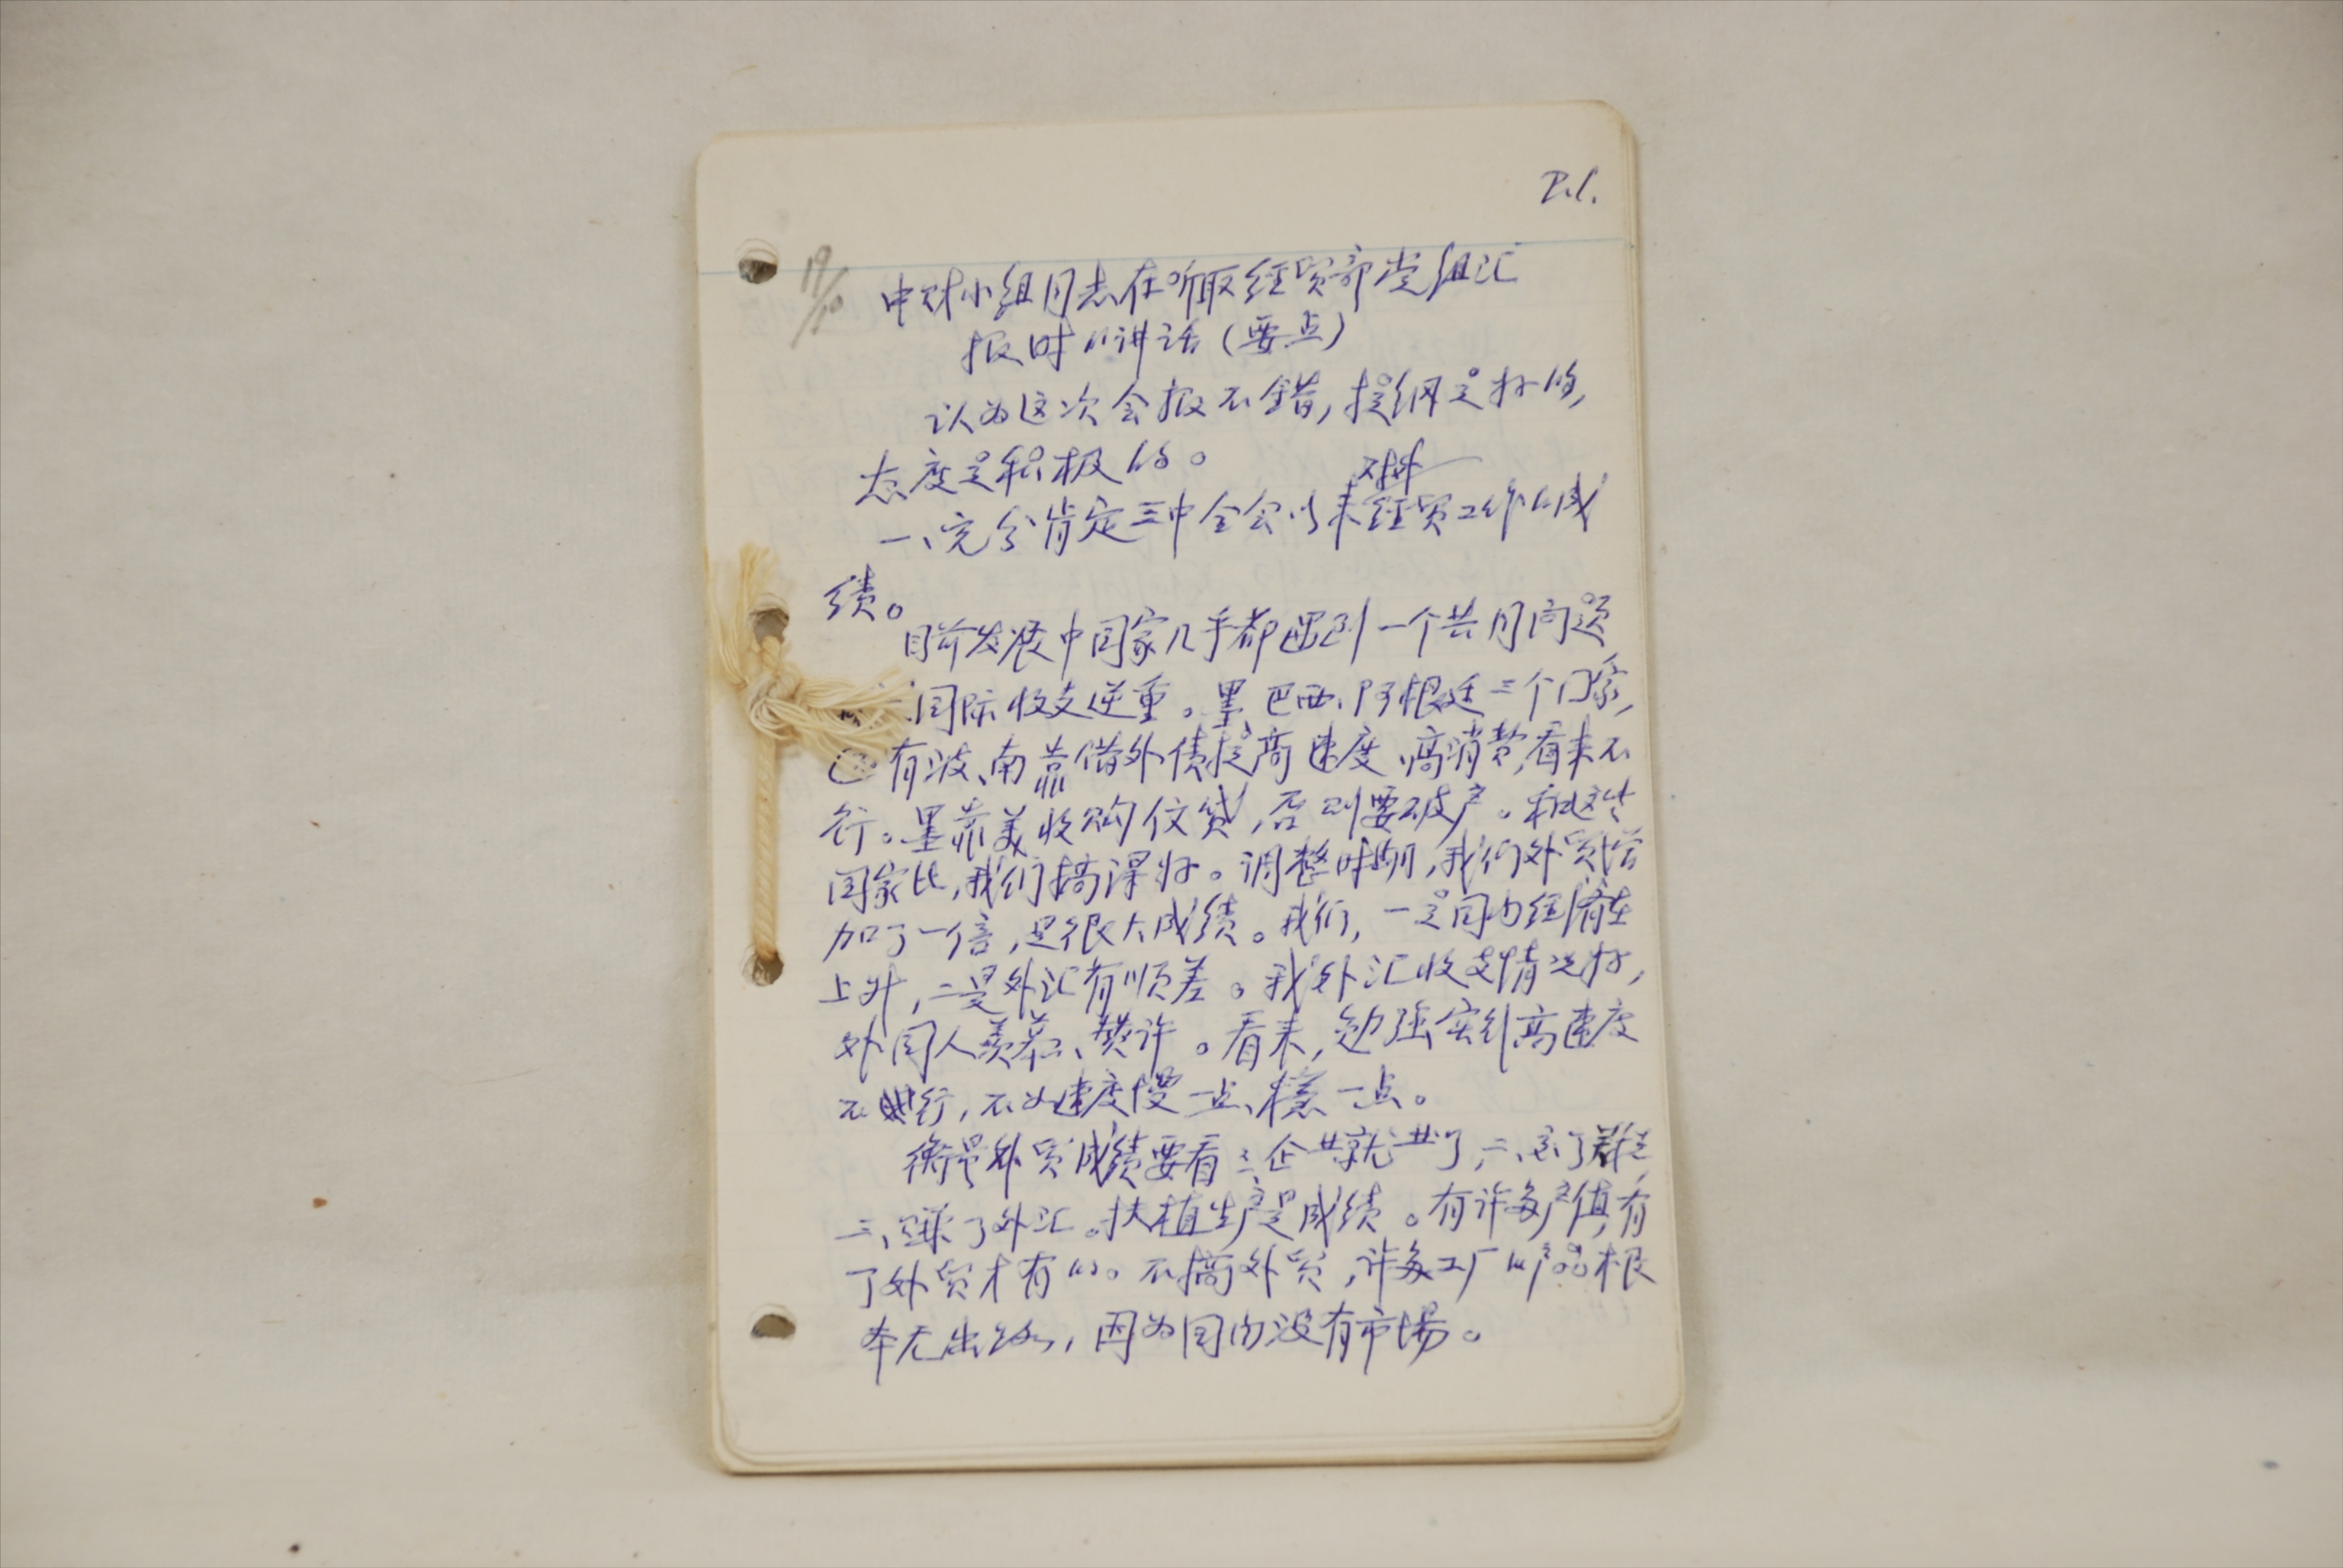 P.1.
19/10
中财小组同志在听取经贸部党组汇
报时的讲话(要点)
认为这次会报不错,提纲是好的,
态度是积极的。
对外
一、充分肯定三中全会以来经贸工作的成
绩。
目前发展中国家几乎都遇到一个共同问题
国际收支逆重。墨、巴西、阿根廷三个国家,
有波、南靠借外债提高速度、高消费,看来不
行。墨靠美收购优贷,否则要破产。和这些
国家比,我们搞得好。调整时期,我们外贸增
加了一倍,是很大成绩。我们,一是国内经济在
上升,二是外汇有顺差。我外汇收支情况好,
外国人羡慕、赞许。看来,勉强实行高速度
不行,不如速度慢一点、稳一点。
衡量外贸成绩要看:企业就业了,二、
三、赚了外汇。扶植生产是成绩。有许多产值,有
了外贸才有的。不搞外贸,许多工厂的产品根
本无出路,因为国内没有市场。